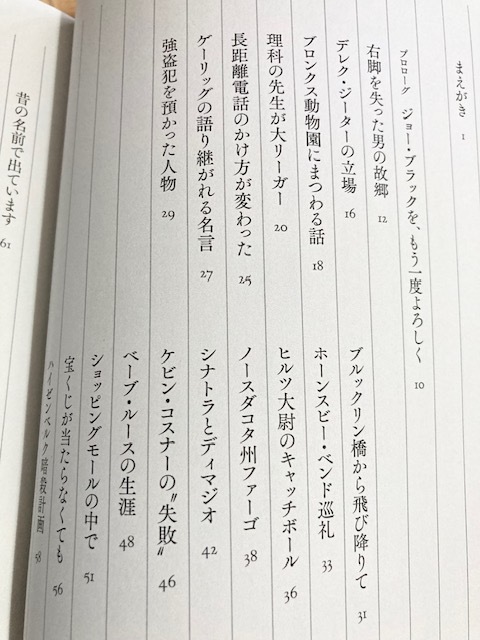 まえがき 1
プロローグ ジョー・ブラックを、もう一度よろしく 10
右脚を失った男の故郷 12
デレク・ジーターの立場 16
ブロンクス動物園にまつわる話 18
理科の先生が大リーガー 20
長距離電話のかけ方が変わった 25
ゲーリッグの語り継がれる名言 27
強盗犯を預かった人物 29
ブルックリン橋から飛び降りて 31
ホーンスビー・ベンド巡礼 33
ヒルツ大尉のキャッチボール 36
ノースダコタ州ファーゴ 38
シナトラとディマジオ 42
ケビン・コスナーの〝失敗〟 46
ベーブ・ルースの生涯 48
ショッピングモールの中で 51
宝くじが当たらなくても 56
ハイゼンベルク暗殺計画 58
昔の名前で出ています 61